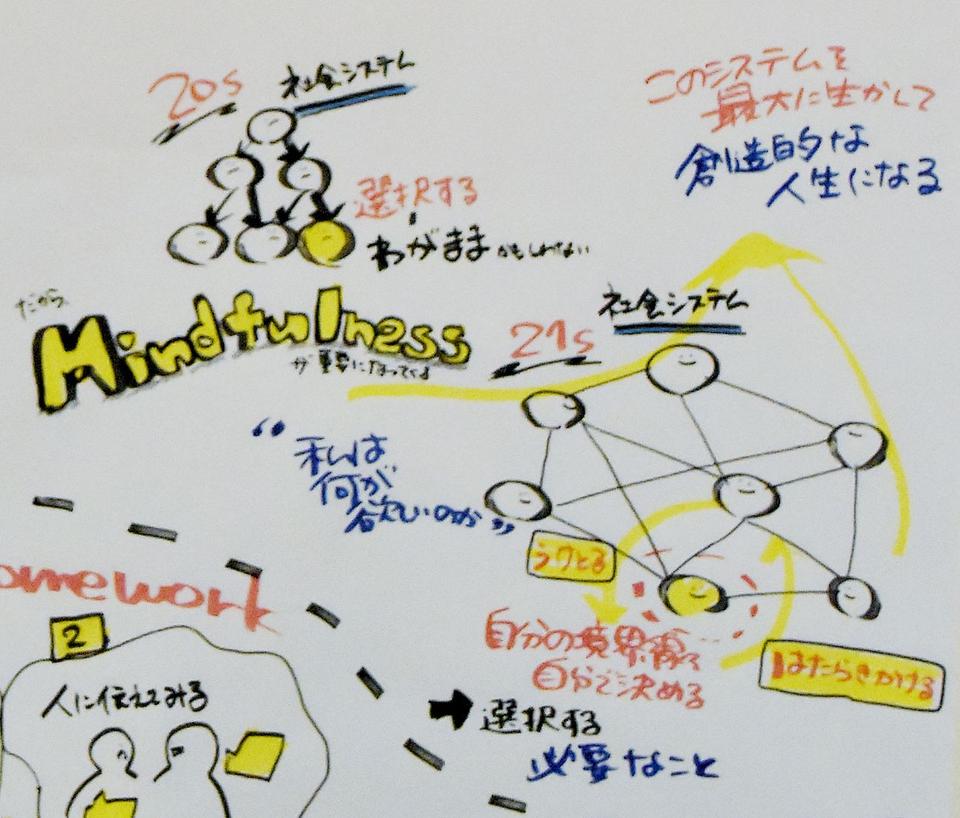 20s
社会システム
選択する
わがままかもしれない
だから
Mindfulness
が重要になってくる
このシステムを
最大に生かして
創造的な
人生になる
21s
社会システム
“私は
何が
欲しいのか”
うけとる
はたらきかける
自分の境界線を
自分で決める
選択する
必要なこと
omework
2
人に伝えてみる